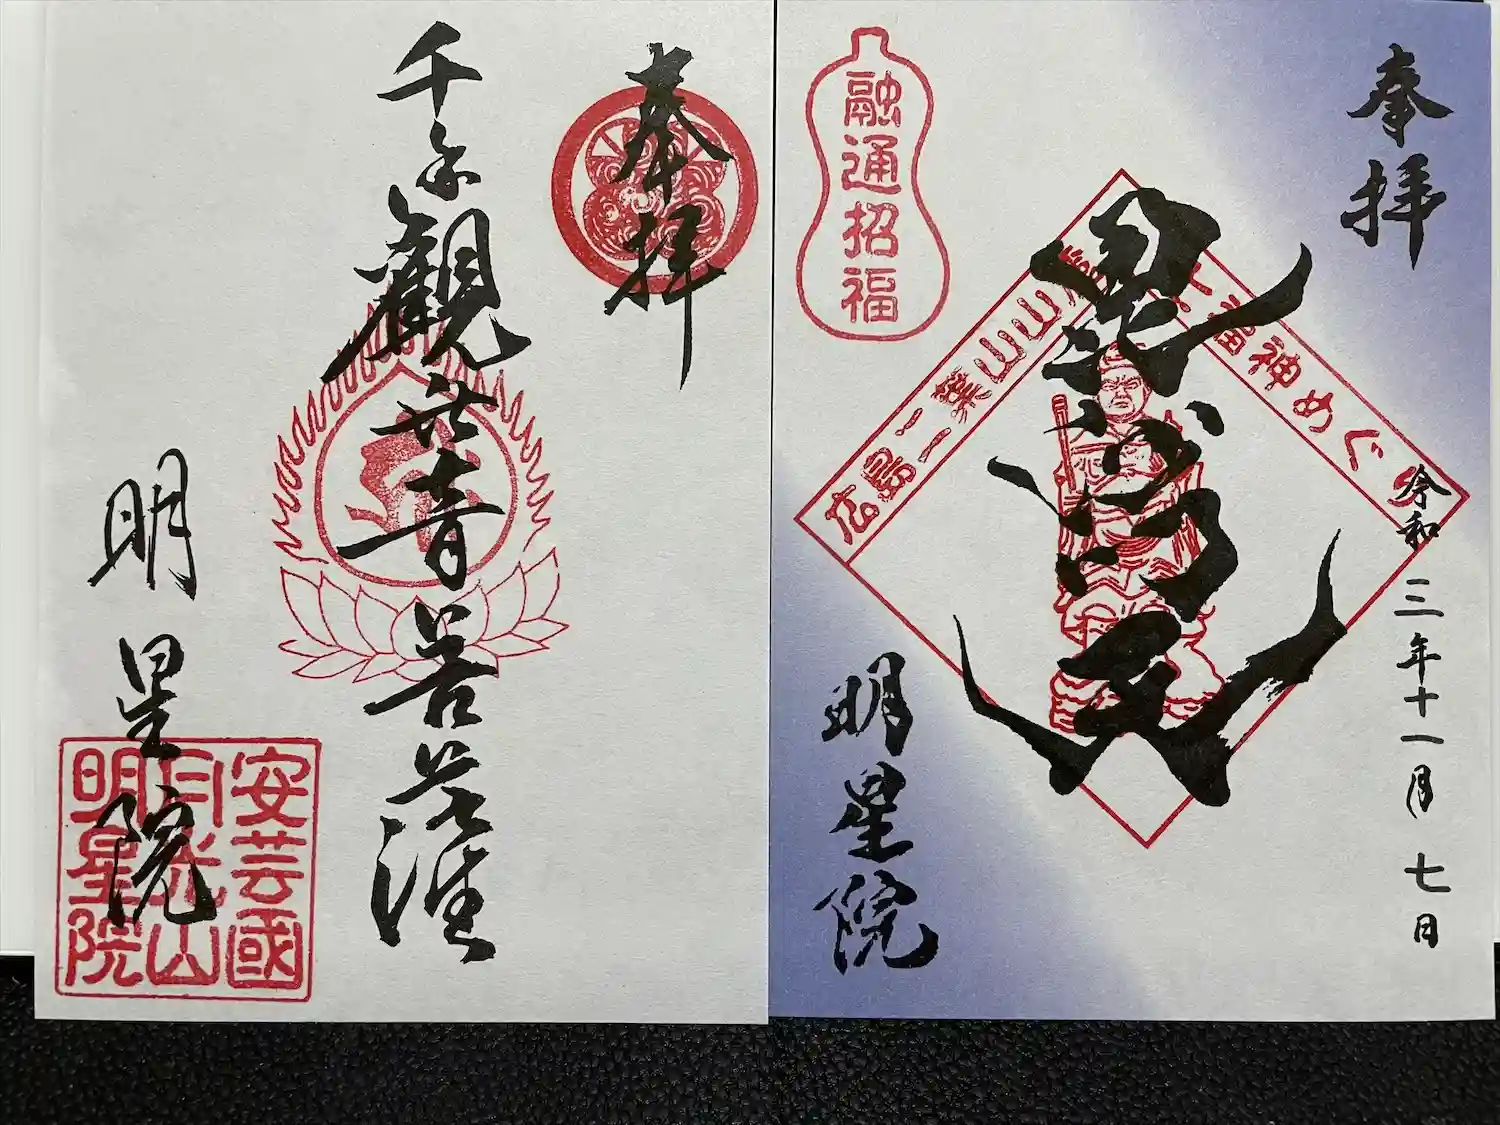 奉拝
令和三年十一月七日
毘沙門天
広島二葉山山麓
七福神めぐり
融通招福
明星院
奉拝
千手觀世音菩薩
明星院
安芸國
月光山
明星院